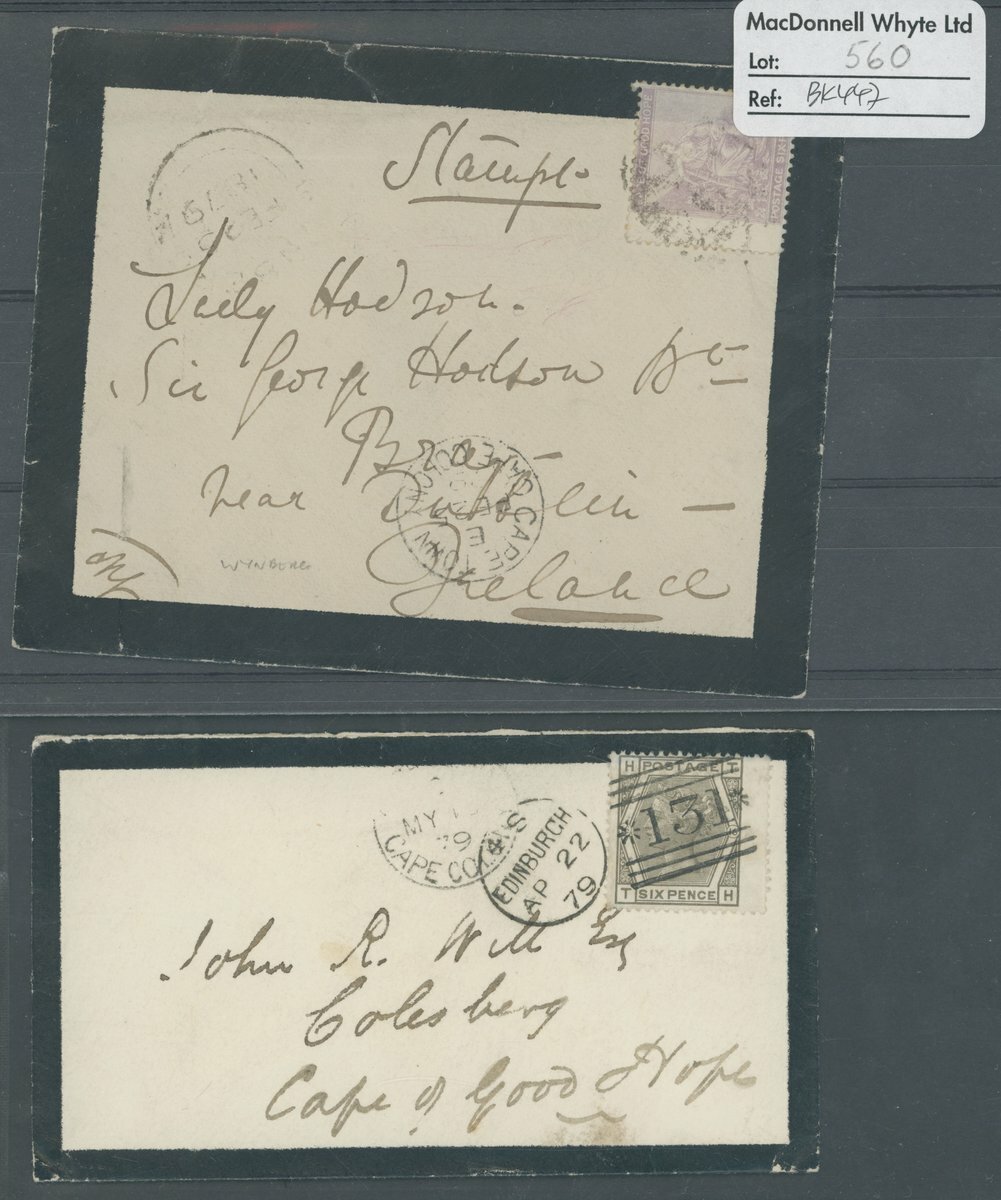 MacDonnell Whyte Ltd
Lot: 560
Ref: BK447
GOOD HOPE
POSTAGE SIX
Stamps
FE
79
Lady Hodson.
Sir George Hodson Bt
Bray
near Dublin —
Ireland
CAPE TOWN
CAPE COLON
WYNBERG
H POSTAGE T
131
T SIX PENCE H
MY 1
79
CAPE CO
EDINBURGH
AP 22
79
John R. Will Esq
Colesberg
Cape of Good Hope